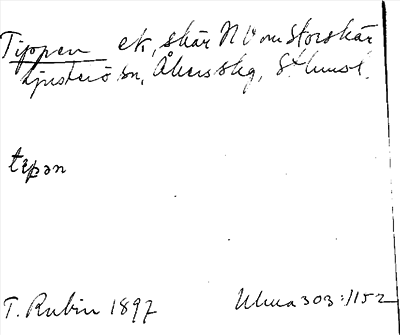 Tippen ek, skär NV om Storskär
Ljusterö sn, Åkers skg, Sthmsl.
tɩpən
T. Rubin 1897
Ulma 303:1152